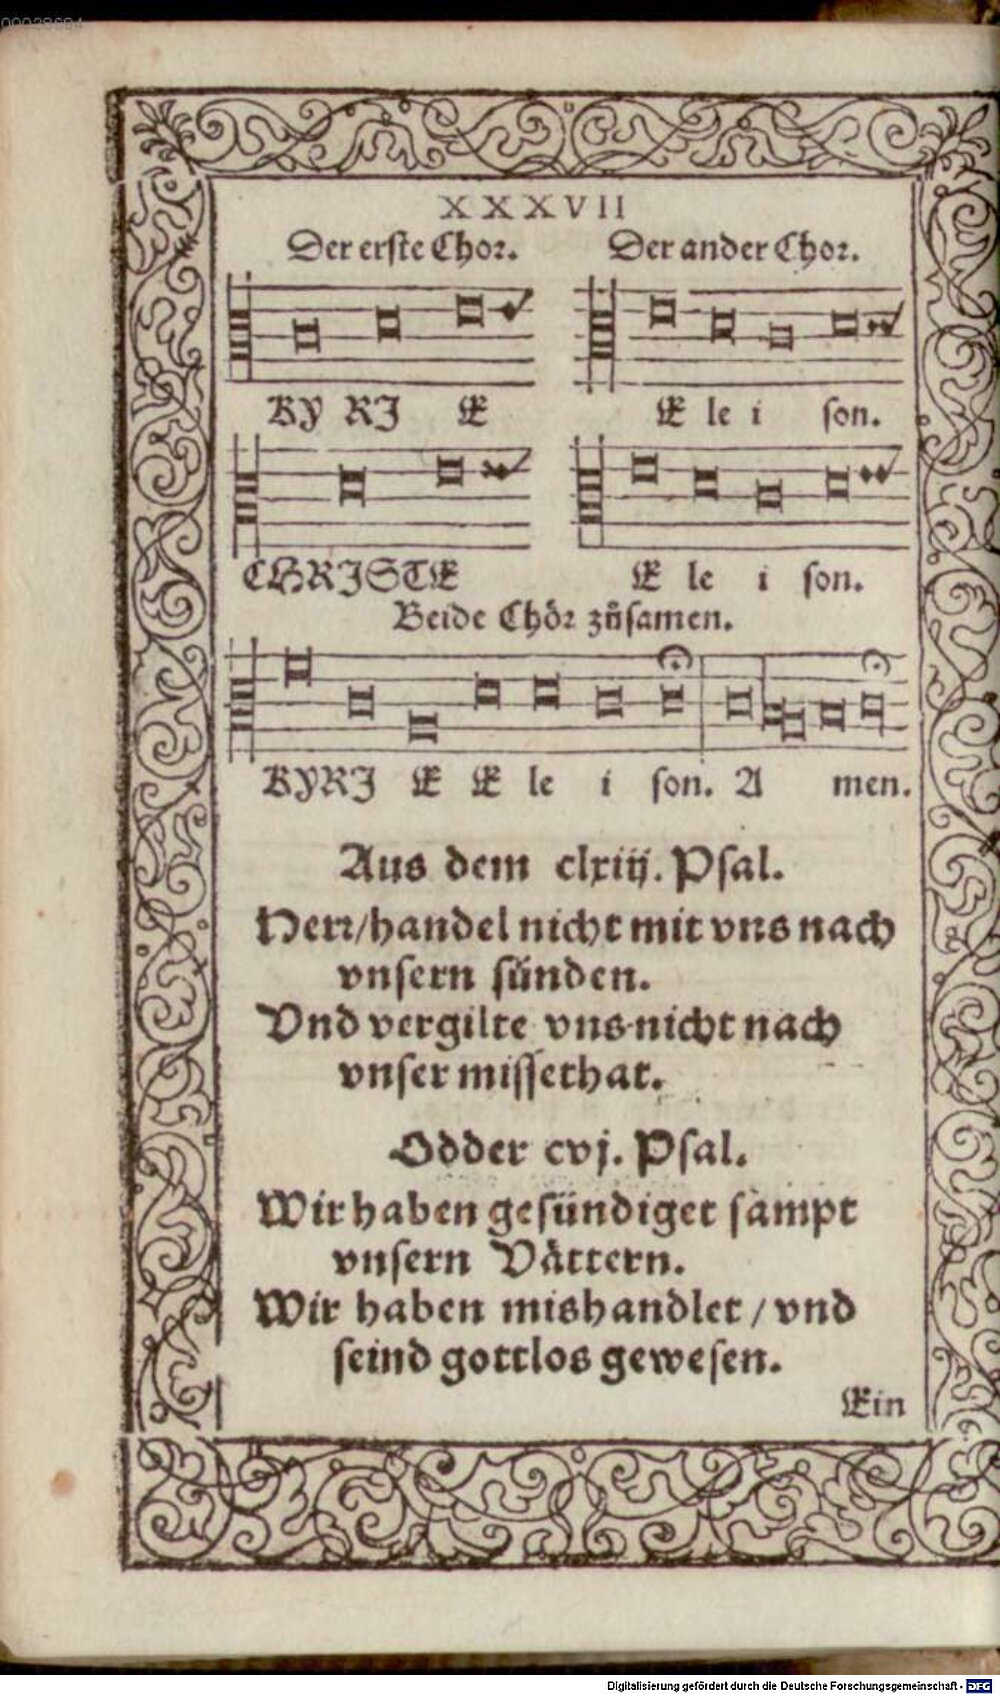 00028684
XXXVII
Der erste Chor. Der ander Chor.
KY RJ E E le i son.
CHRJSTE E le i son.
Beide Choͤr zuͦsamen.
KYRJ E E le i son. A men.
Aus dem clxiij. Psal.
Herr/handel nicht mit vns nach
vnsern sünden.
Vnd vergilte vns nicht nach
vnser missethat.
Odder cvj. Psal.
Wir haben gesündiget sampt
vnsern Vaͤttern.
Wir haben mishandlet / vnd
seind gottlos gewesen.
Ein
Digitalisierung gefördert durch die Deutsche Forschungsgemeinschaft - DFG